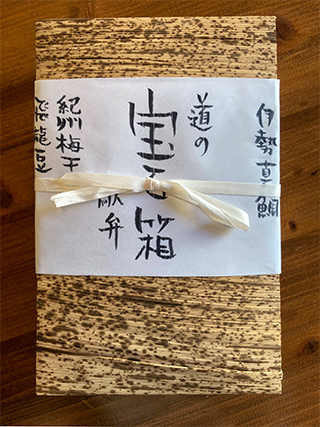 伊勢真鯛
道の
宝石箱
弁
紀州梅干
飛龍豆